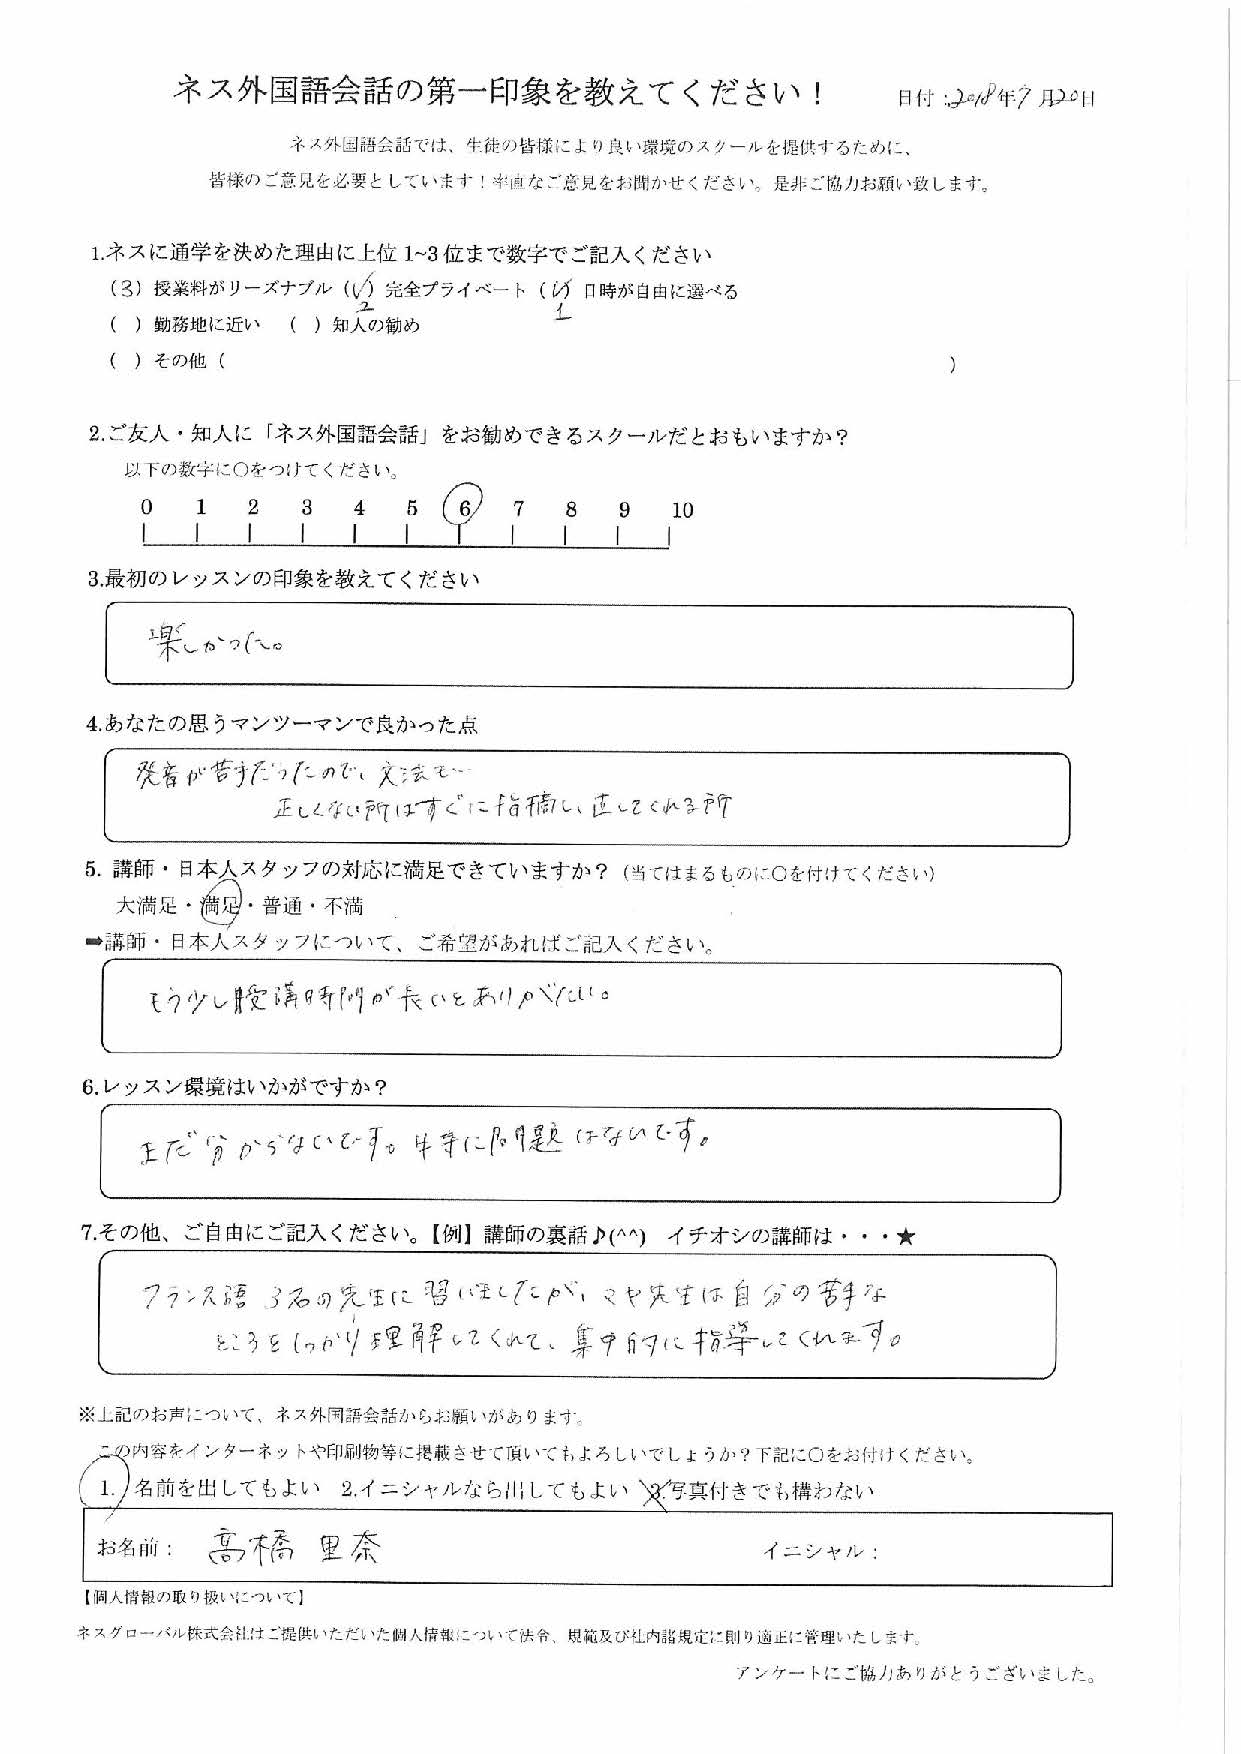 ネス外国語会話の第一印象を教えてください！　日付：2018年7月20日
ネス外国語会話では、生徒の皆様により良い環境のスクールを提供するために、
皆様のご意見を必要としています！率直なご意見をお聞かせください。是非ご協力お願い致します。
1.ネスに通学を決めた理由に上位 1~3 位まで数字でご記入ください
（3）授業料がリーズナブル（✓）完全プライベート（✓）日時が自由に選べる
2　1
（ ）勤務地に近い　（ ）知人の勧め
（ ）その他（　）
2.ご友人・知人に「ネス外国語会話」をお勧めできるスクールだとおもいますか？
以下の数字に〇をつけてください。
0 1 2 3 4 5 6 7 8 9 10
3.最初のレッスンの印象を教えてください
楽しかった。
4.あなたの思うマンツーマンで良かった点
発音が苦手だったので、文法で
正しくない所はすぐに指摘し、直してくれる所
5. 講師・日本人スタッフの対応に満足できていますか？（当てはまるものに〇を付けてください）
大満足・満足・普通・不満
➡講師・日本人スタッフについて、ご希望があればご記入ください。
もう少し受講時間が長いとありがたい。
6.レッスン環境はいかがですか？
まだ分からないです。特に問題はないです。
7.その他、ご自由にご記入ください。【例】講師の裏話♪(^^)　イチオシの講師は・・・★
フランス語 3名の先生に習いましたが、マヤ先生は自分の苦手な
ところをしっかり理解してくれて、集中的に指導してくれます。
※上記のお声について、ネス外国語会話からお願いがあります。
この内容をインターネットや印刷物等に掲載させて頂いてもよろしいでしょうか？下記に〇をお付けください。
1.名前を出してもよい　2.イニシャルなら出してもよい　3.写真付きでも構わない
お名前：　高橋 里奈　イニシャル：
【個人情報の取り扱いについて】
ネスグローバル株式会社はご提供いただいた個人情報について法令、規範及び社内諸規定に則り適正に管理いたします。
アンケートにご協力ありがとうございました。